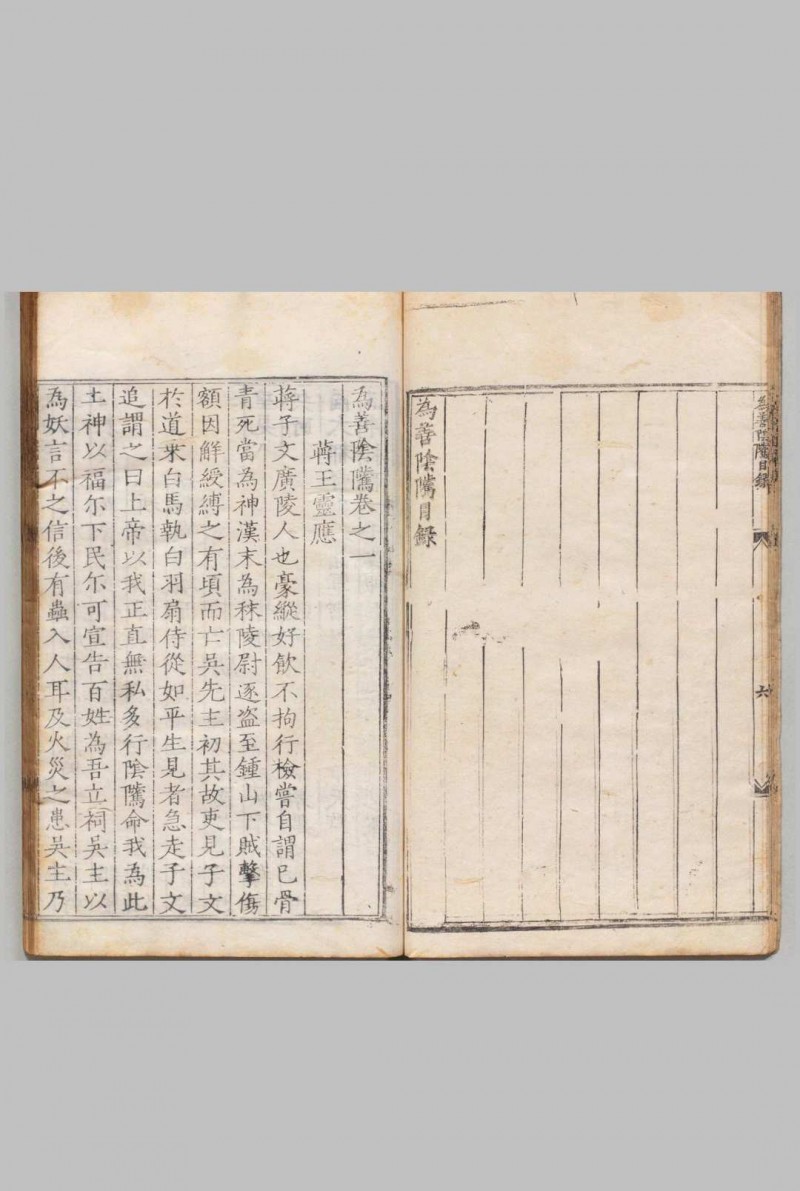 為善陰隲目録
六
為善陰隲目録
為善陰隲卷之一
蔣王靈應
蔣子文廣陵人也豪縱好飲不拘行檢嘗自謂已骨
青死當為神漢末為秣陵尉逐盗至鍾山下賊擊傷
額因解綬縛之有頃而亡吳先主初其故吏見子文
於道乘白馬執白羽扇侍從如平生見者急走子文
追謂之曰上帝以我正直無私多行陰隲命我為此
土神以福尓下民尓可宣告百姓為吾立祠吳主以
為妖言不之信後有蟲入人耳及火災之患吳主乃